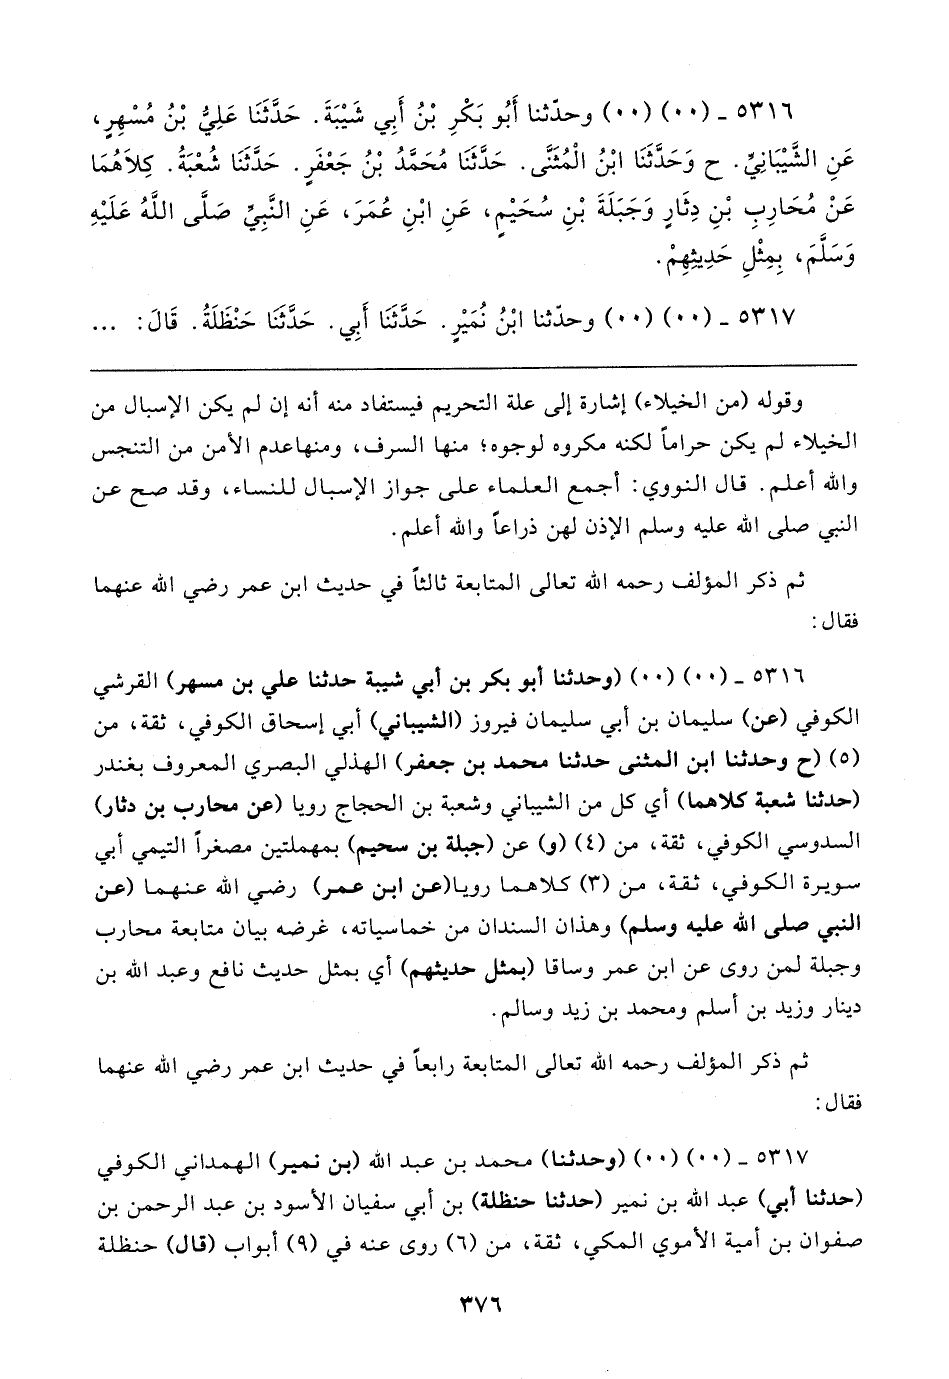 ٥٣١٦ ـ (٠٠) (٠٠) وحدّثنا أَبُو بَكْرِ بْنُ أَبِي شَيْبَةَ. حَدَّثَنَا عَلِيُّ بْنُ مُسْهِرٍ،
عَنِ الشَّيْبَانِيِّ. ح وَحَدَّثَنَا ابْنُ الْمُثَنَّى. حَدَّثَنَا مُحَمَّدُ بْنُ جَعْفَرٍ. حَدَّثَنَا شُعْبَةُ. كِلاَهُمَا
عَنْ مُحَارِبِ بْنِ دِثَارٍ وَجَبَلَةَ بْنِ سُحَيْمٍ، عَنِ ابْنِ عُمَرَ، عَنِ النَّبِيِّ صَلَّى اللَّهُ عَلَيْهِ
وَسَلَّمَ، بِمِثْلِ حَدِيثِهِمْ.
٥٣١٧ ـ (٠٠) (٠٠) وحدّثنا ابْنُ نُمَيْرٍ. حَدَّثَنَا أَبِي. حَدَّثَنَا حَنْظَلَةُ. قَالَ: ...
وقوله (من الخيلاء) إشارة إلى علة التحريم فيستفاد منه أنه إن لم يكن الإسبال من
الخيلاء لم يكن حراماً لكنه مكروه لوجوه؛ منها السرف، ومنهاعدم الأمن من التنجس
والله أعلم. قال النووي: أجمع العلماء على جواز الإسبال للنساء، وقد صح عن
النبي صلى الله عليه وسلم الإذن لهن ذراعاً والله أعلم.
ثم ذكر المؤلف رحمه الله تعالى المتابعة ثالثاً في حديث ابن عمر رضي الله عنهما
فقال:
٥٣١٦ ـ (٠٠) (٠٠) (وحدثنا أبو بكر بن أبي شيبة حدثنا علي بن مسهر) القرشي
الكوفي (عن) سليمان بن أبي سليمان فيروز (الشيباني) أبي إسحاق الكوفي، ثقة، من
(٥) (ح وحدثنا ابن المثنى حدثنا محمد بن جعفر) الهذلي البصري المعروف بغندر
(حدثنا شعبة كلاهما) أي كل من الشيباني وشعبة بن الحجاج رويا (عن محارب بن دثار)
السدوسي الكوفي، ثقة، من (٤) (و) عن (جبلة بن سحيم) بمهملتين مصغراً التيمي أبي
سويرة الكوفي، ثقة، من (٣) كلاهما رويا(عن ابن عمر) رضي الله عنهما (عن
النبي صلى الله عليه وسلم) وهذان السندان من خماسياته، غرضه بيان متابعة محارب
وجبلة لمن روى عن ابن عمر وساقا (بمثل حديثهم) أي بمثل حديث نافع وعبد الله بن
دينار وزيد بن أسلم ومحمد بن زيد وسالم.
ثم ذكر المؤلف رحمه الله تعالى المتابعة رابعاً في حديث ابن عمر رضي الله عنهما
فقال:
٥٣١٧ ـ (٠٠) (٠٠) (وحدثنا) محمد بن عبد الله (بن نمير) الهمداني الكوفي
(حدثنا أبي) عبد الله بن نمير (حدثنا حنظلة) بن أبي سفيان الأسود بن عبد الرحمن بن
صفوان بن أمية الأموي المكي، ثقة، من (٦) روى عنه في (٩) أبواب (قال) حنظلة
٣٧٦